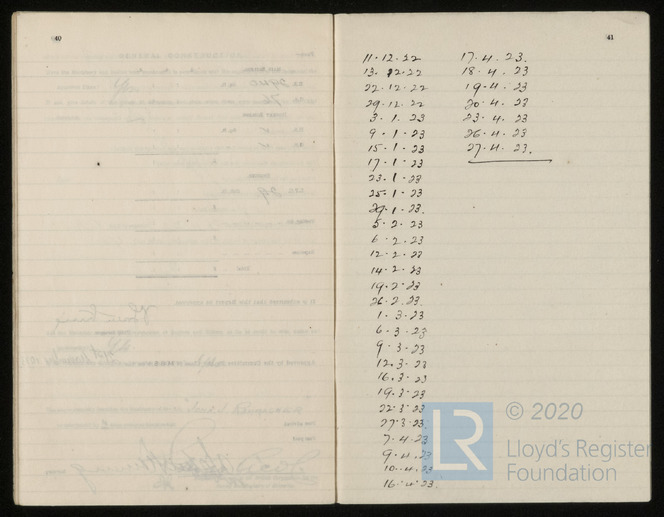 40
41
11.12.22
13.12.22
22.12.22
29.12.22
3.1.23
9.1.23
15.1.23
17.1.23
23.1.23
25.1.23
29.1.23.
5.2.23
6.2.23
12.2.23
14.2.23
19.2.23
26.2.23.
1.3.23
6.3.23
9.3.23
12.3.23
16.3.23
19.3.23
22.3.23
27.3.23.
7.4.23
9.4.23
10.4.23
16.4.23.
17.4.23.
18.4.23
19.4.23
20.4.23
23.4.23
26.4.23
27.4.23.
LR
© 2020
Lloyd's Register
Foundation